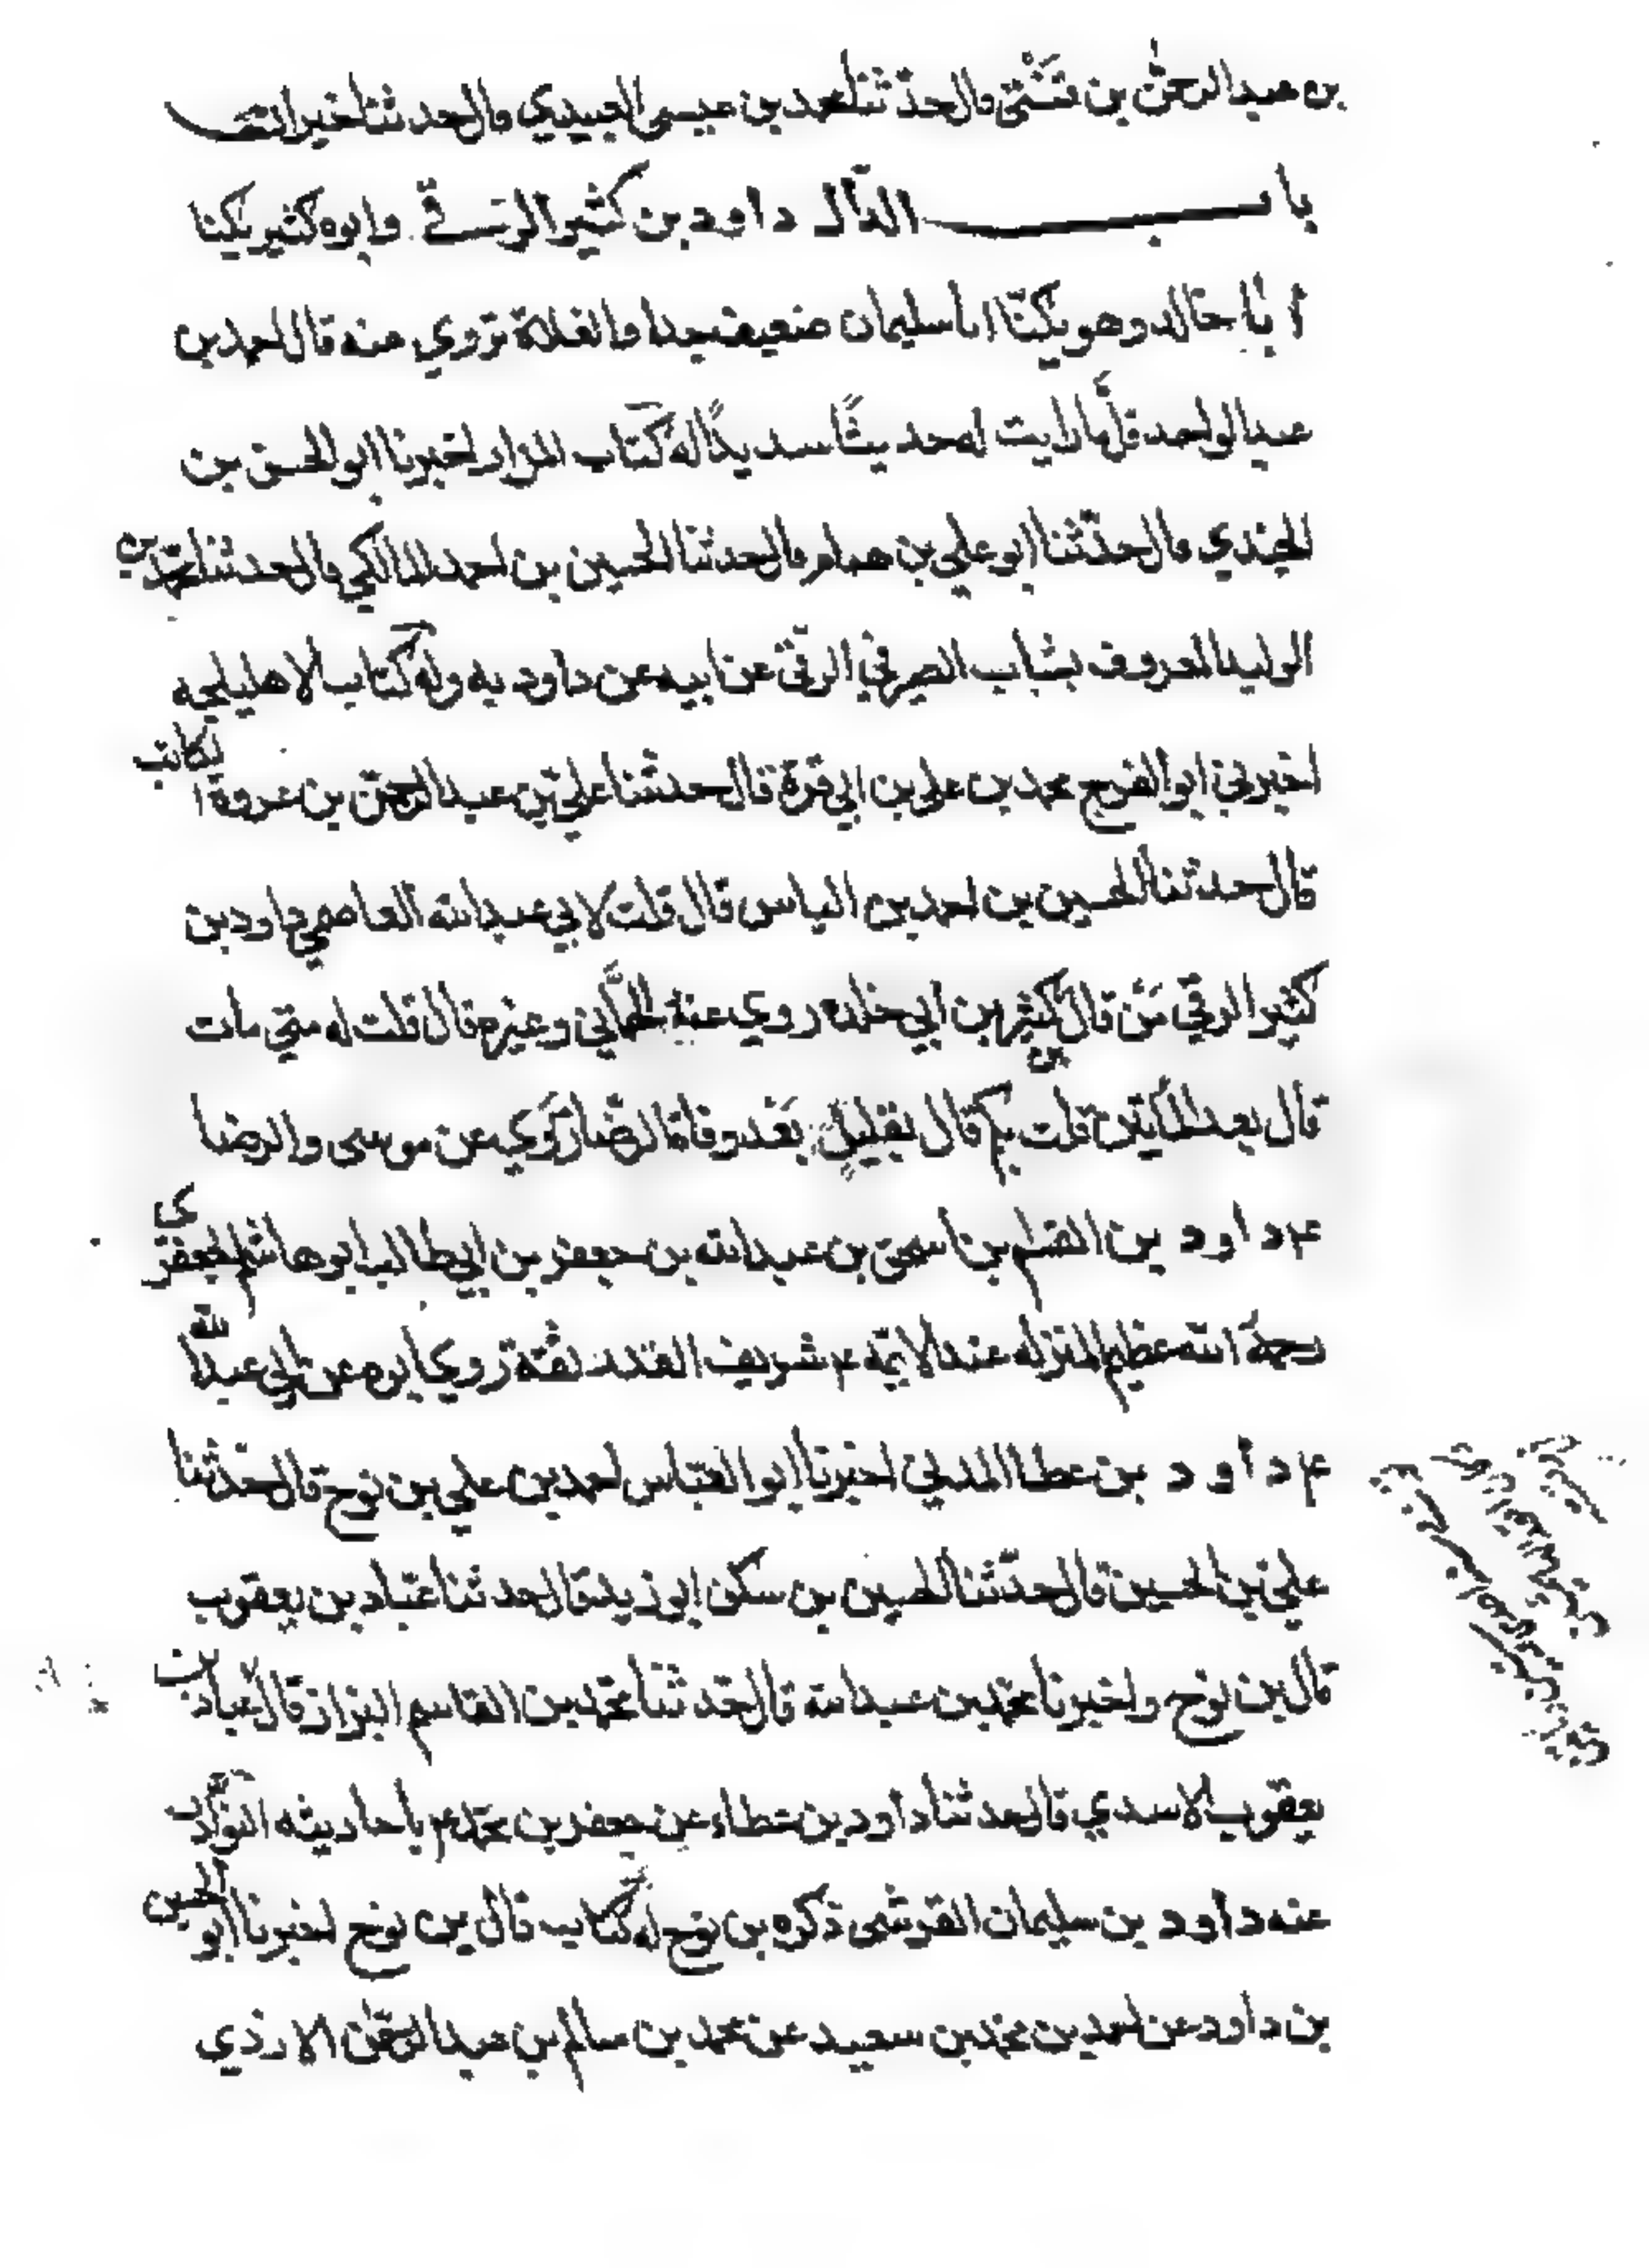 بن عبد الرحمن بن فنتى قال حدثنا محمد بن عيسى العبيدي قال حدثنا خيران
باب الدال داود بن كثير الرقي وابوه كثير يكنا
ابا خالد وهو يكنا ابا سليمان ضعيف جدا والغلاة تروي عنه قال احمد بن
عبد الواحد قل ما رايت له حديثًا سديدًا له كتاب المزار اخبرنا ابو الحسن بن
الجندي قال حدثنا ابو علي بن همام قال حدثنا الحسين بن احمد المالكي قال حدثنا محمد بن
الوليد المعروف بشباب الصيرفي الرقي عن ابيه عن داود به وله كتاب الاهليلجه
اخبرني ابو الفرج محمد بن علي بن ابي قرة قال حدثنا علي بن عبد الرحمن بن عروة الكاتب
قال حدثنا الحسين بن احمد بن الياس قال قلت لابي عبد الله العاصمي داود بن
كثير الرقي من قال كثير بن ابي خلده روي عنه الحماني وغيره قال قلت له متى مات
قال بعد المايتين قلت بكم قال بقليل بعد وفاة الرضا روي عن موسى والرضا
ع داود بن القسم بن اسحق بن عبد الله بن جعفر بن ابي طالب ابو هاشم الجعفري
رحمه الله عظيم المنزله عند الايمة ع شريف القدر ثقة روي ابوه عن ابي عبد الله
ع داود بن عطا المدني اخبرنا ابو العباس احمد بن علي بن نوح قال حدثنا
علي بن الحسين قال حدثنا الحسين بن سكن ابو زيد قال حدثنا عباد بن يعقوب
قال بن نوح واخبرنا محمد بن عبد الله قال حدثنا محمد بن القاسم البزاز قال عباد بن
يعقوب الاسدي قال حدثنا داود بن عطاء عن جعفر بن محمد ع باحاديثه النوادر
عنه داود بن سليمان القرشى ذكره بن نوح له كتاب قال بن نوح اخبرنا ابو الحسين
بن داود عن احمد بن محمد بن سعيد عن محمد بن سالم بن عبد الرحمن الازدي